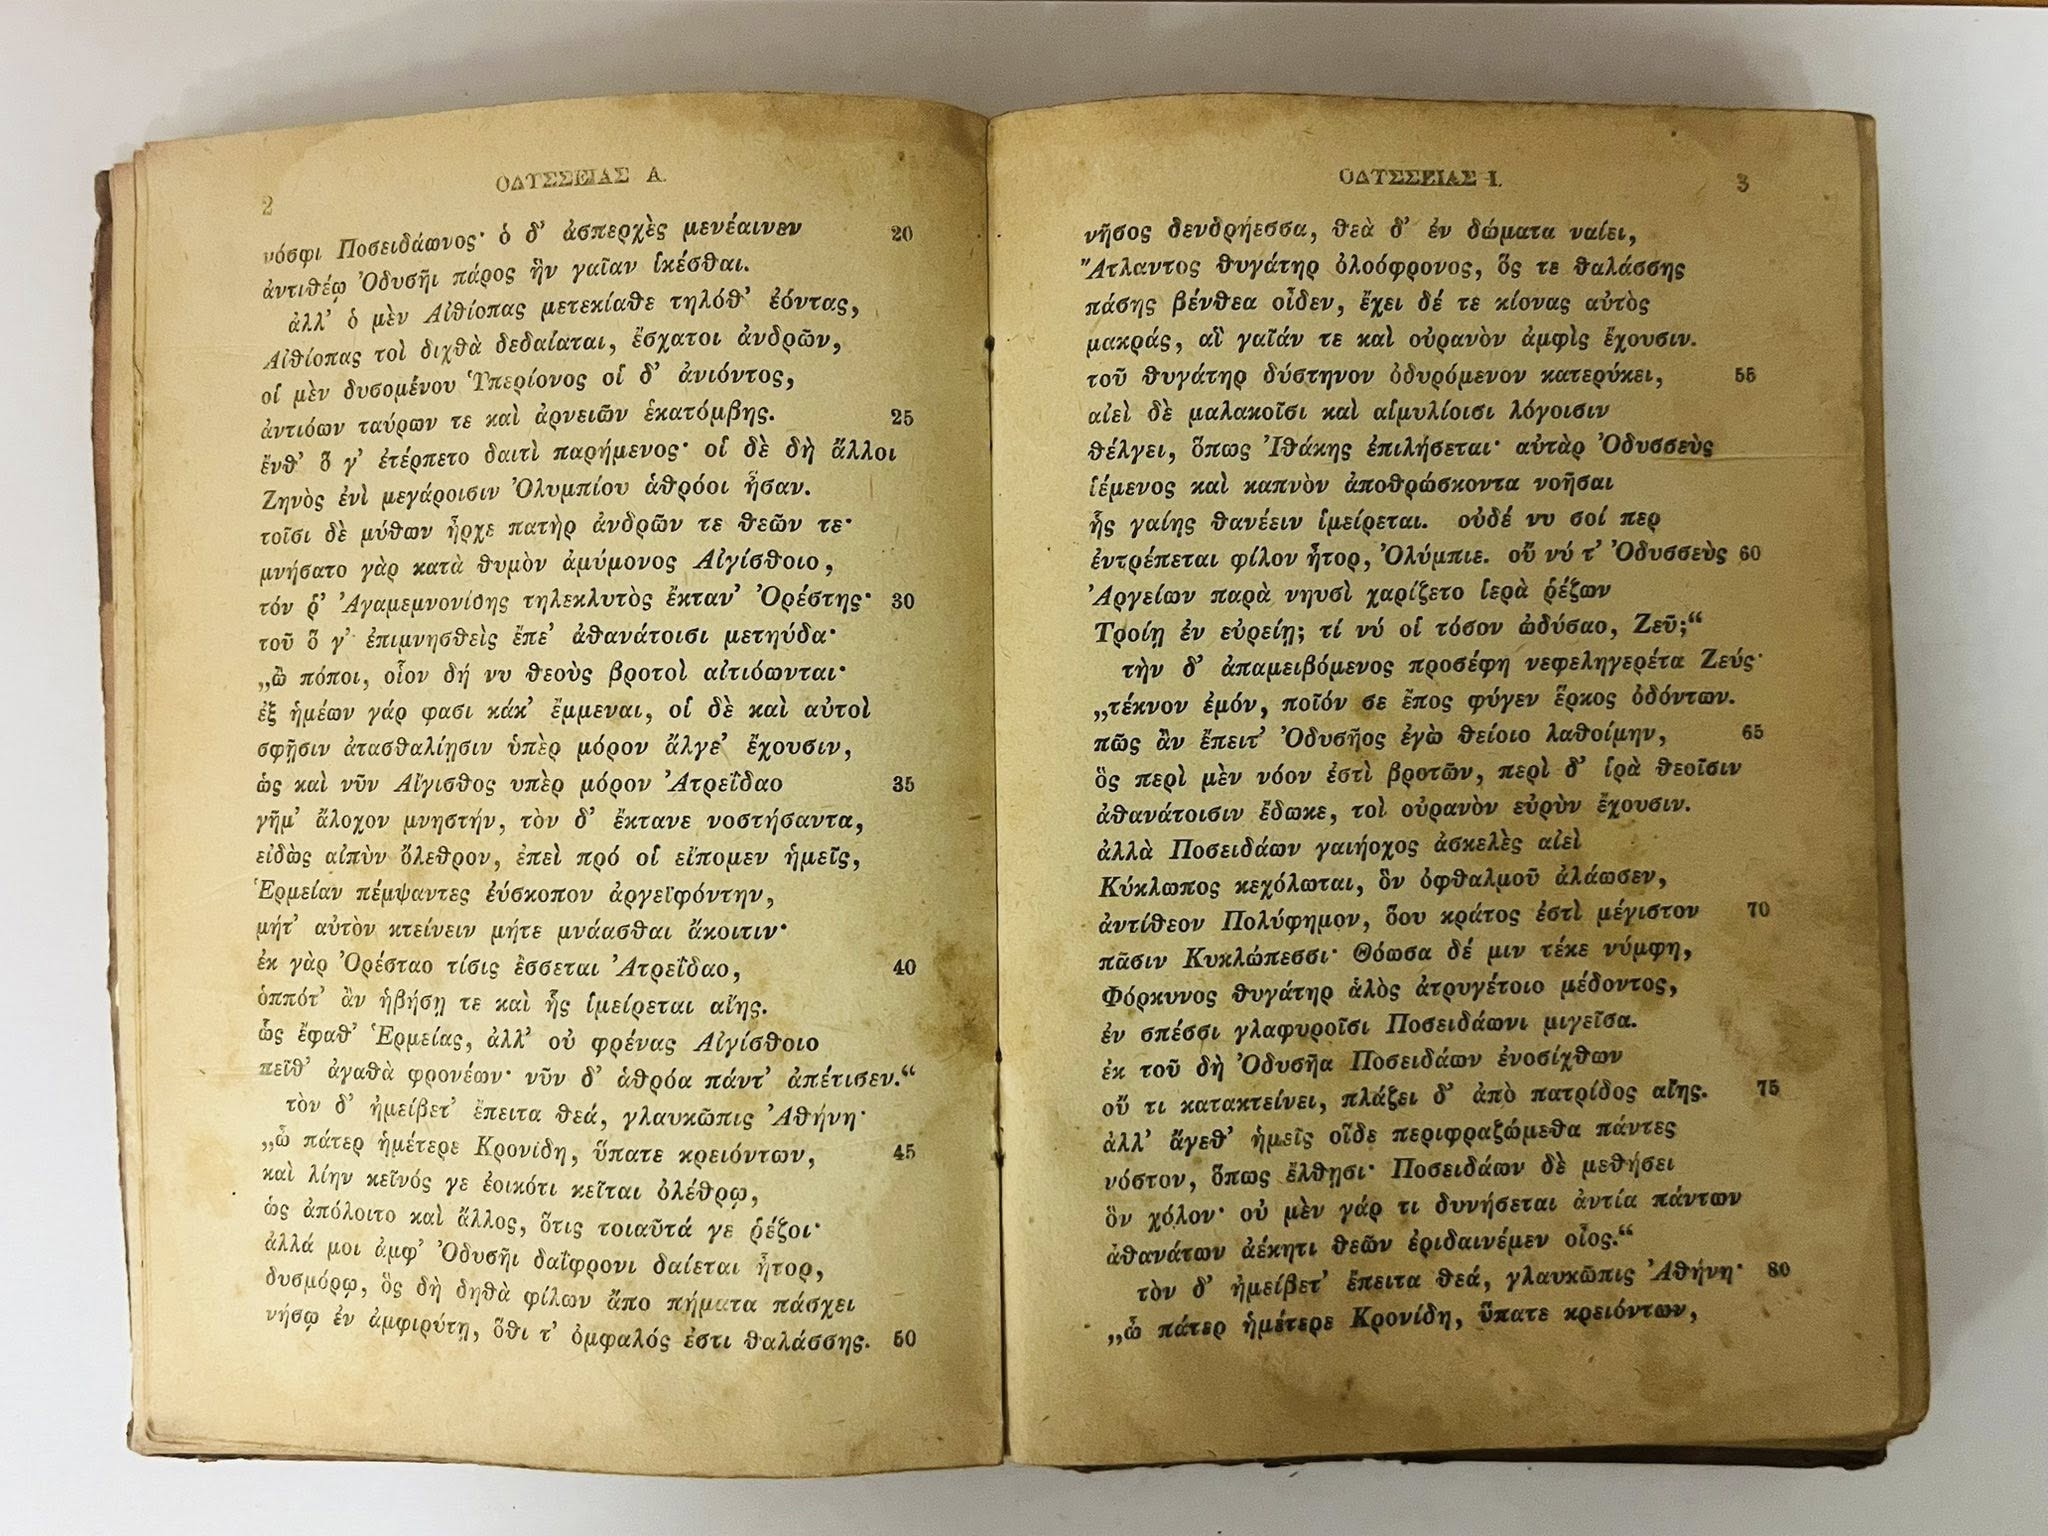 2
ΟΔΥΣΣΕΙΑΣ Α.
νόσφι Ποσειδάωνος· ὁ δ' ἀσπερχὲς μενέαινεν 20
ἀντιθέῳ Ὀδυσῆι πάρος ἣν γαῖαν ἱκέσθαι.
ἀλλ' ὁ μὲν Αἰθίοπας μετεκίαθε τηλόθ' ἐόντας,
Αἰθίοπας τοὶ διχθὰ δεδαίαται, ἔσχατοι ἀνδρῶν,
οἱ μὲν δυσομένου Ὑπερίονος οἱ δ' ἀνιόντος,
ἀντιόων ταύρων τε καὶ ἀρνειῶν ἑκατόμβης. 25
ἔνθ' ὅ γ' ἐτέρπετο δαιτὶ παρήμενος· οἱ δὲ δὴ ἄλλοι
Ζηνὸς ἐνὶ μεγάροισιν Ὀλυμπίου ἁθρόοι ἦσαν.
τοῖσι δὲ μύθων ἦρχε πατὴρ ἀνδρῶν τε θεῶν τε·
μνήσατο γὰρ κατὰ θυμὸν ἀμύμονος Αἰγίσθοιο,
τόν ῥ' Ἀγαμεμνονίδης τηλεκλυτὸς ἔκταν' Ὀρέστης· 30
τοῦ ὅ γ' ἐπιμνησθεὶς ἔπε' ἀθανάτοισι μετηύδα·
„ὢ πόποι, οἷον δή νυ θεοὺς βροτοὶ αἰτιόωνται·
ἐξ ἡμέων γάρ φασι κάκ' ἔμμεναι, οἱ δὲ καὶ αὐτοὶ
σφῇσιν ἀτασθαλίῃσιν ὑπὲρ μόρον ἄλγε' ἔχουσιν,
ὡς καὶ νῦν Αἴγισθος υπὲρ μόρον Ἀτρεΐδαο 35
γῆμ' ἄλοχον μνηστήν, τὸν δ' ἔκτανε νοστήσαντα,
εἰδὼς αἰπὺν ὄλεθρον, ἐπεὶ πρό οἱ εἴπομεν ἡμεῖς,
Ἑρμείαν πέμψαντες ἐύσκοπον ἀργεϊφόντην,
μήτ' αὐτὸν κτείνειν μήτε μνάασθαι ἄκοιτιν·
ἐκ γὰρ Ὀρέσταο τίσις ἔσσεται Ἀτρεΐδαο, 40
ὁππότ' ἂν ἡβήσῃ τε καὶ ἧς ἱμείρεται αἴης.
ὣς ἔφαθ' Ἑρμείας, ἀλλ' οὐ φρένας Αἰγίσθοιο
πεῖθ' ἀγαθὰ φρονέων· νῦν δ' ἁθρόα πάντ' ἀπέτισεν.“
τὸν δ' ἠμείβετ' ἔπειτα θεά, γλαυκῶπις Ἀθήνη·
„ὦ πάτερ ἡμέτερε Κρονίδη, ὕπατε κρειόντων, 45
καὶ λίην κεῖνός γε ἐοικότι κεῖται ὀλέθρῳ,
ὡς ἀπόλοιτο καὶ ἄλλος, ὅτις τοιαῦτά γε ῥέζοι·
ἀλλά μοι ἀμφ' Ὀδυσῆι δαΐφρονι δαίεται ἦτορ,
δυσμόρῳ, ὃς δὴ δηθὰ φίλων ἄπο πήματα πάσχει
νήσῳ ἐν ἀμφιρύτῃ, ὅθι τ' ὀμφαλός ἐστι θαλάσσης. 50
ΟΔΥΣΣΕΙΑΣ Ι. 3
νῆσος δενδρήεσσα, θεὰ δ' ἐν δώματα ναίει,
Ἄτλαντος θυγάτηρ ὀλοόφρονος, ὅς τε θαλάσσης
πάσης βένθεα οἶδεν, ἔχει δέ τε κίονας αὐτὸς
μακράς, αἳ γαῖάν τε καὶ οὐρανὸν ἀμφὶς ἔχουσιν.
τοῦ θυγάτηρ δύστηνον ὀδυρόμενον κατερύκει, 55
αἰεὶ δὲ μαλακοῖσι καὶ αἱμυλίοισι λόγοισιν
θέλγει, ὅπως Ἰθάκης ἐπιλήσεται· αὐτὰρ Ὀδυσσεὺς
ἱέμενος καὶ καπνὸν ἀποθρώσκοντα νοῆσαι
ἧς γαίης θανέειν ἱμείρεται. οὐδέ νυ σοί περ
ἐντρέπεται φίλον ἦτορ, Ὀλύμπιε. οὔ νύ τ' Ὀδυσσεὺς 60
Ἀργείων παρὰ νηυσὶ χαρίζετο ἱερὰ ῥέζων
Τροίῃ ἐν εὐρείῃ; τί νύ οἱ τόσον ὠδύσαο, Ζεῦ;“
τὴν δ' ἀπαμειβόμενος προσέφη νεφεληγερέτα Ζεύς·
„τέκνον ἐμόν, ποῖόν σε ἔπος φύγεν ἕρκος ὀδόντων.
πῶς ἂν ἔπειτ' Ὀδυσῆος ἐγὼ θείοιο λαθοίμην, 65
ὃς περὶ μὲν νόον ἐστὶ βροτῶν, περὶ δ' ἱρὰ θεοῖσιν
ἀθανάτοισιν ἔδωκε, τοὶ οὐρανὸν εὐρὺν ἔχουσιν.
ἀλλὰ Ποσειδάων γαιήοχος ἀσκελὲς αἰεὶ
Κύκλωπος κεχόλωται, ὃν ὀφθαλμοῦ ἀλάωσεν,
ἀντίθεον Πολύφημον, ὅου κράτος ἐστὶ μέγιστον 70
πᾶσιν Κυκλώπεσσι· Θόωσα δέ μιν τέκε νύμφη,
Φόρκυνος θυγάτηρ ἁλὸς ἀτρυγέτοιο μέδοντος,
ἐν σπέσσι γλαφυροῖσι Ποσειδάωνι μιγεῖσα.
ἐκ τοῦ δὴ Ὀδυσῆα Ποσειδάων ἐνοσίχθων
οὔ τι κατακτείνει, πλάζει δ' ἀπὸ πατρίδος αἴης. 75
ἀλλ' ἄγεθ' ἡμεῖς οἵδε περιφραζώμεθα πάντες
νόστον, ὅπως ἔλθῃσι· Ποσειδάων δὲ μεθήσει
ὃν χόλον· οὐ μὲν γάρ τι δυνήσεται ἀντία πάντων
ἀθανάτων ἀέκητι θεῶν ἐριδαινέμεν οἶος.“
τὸν δ' ἠμείβετ' ἔπειτα θεά, γλαυκῶπις Ἀθήνη· 80
„ὦ πάτερ ἡμέτερε Κρονίδη, ὕπατε κρειόντων,